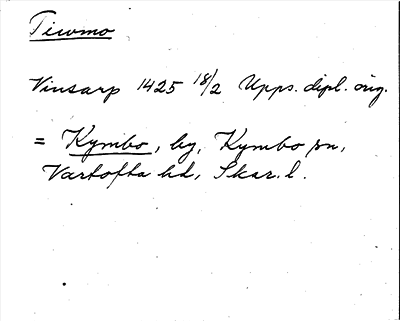 Tiwmo
Vinsarp 1425 18/2 Upps. dipl. orig.
= Kymbo, by, Kymbo sn,
Vartofta hd, Skar. l.